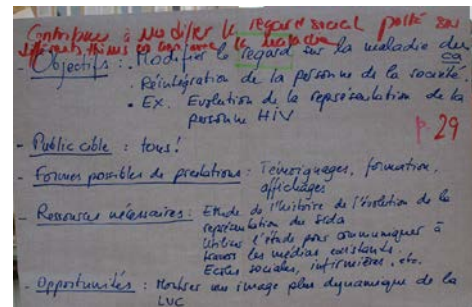 Contribuer à modifier le regard social porté sur
différents thèmes en concerne la maladie
- Objectifs : Modifier le regard sur la maladie du ca
. Réintégration de la personne de la société
. Ex. Evolution de la représentation de la
personne HIV
p. 29
- Public cible : tous!
- Formes possibles de prestations : Témoignages, formation,
affichages
- Ressources nécessaires : Etude de l'histoire de l'évolution de la
représentation du Sida
Utiliser l'étude pour communiquer à
travers les médias existants.
Ecoles sociales, infirmières, etc.
- Opportunités : Montrer une image plus dynamique de la
LVC